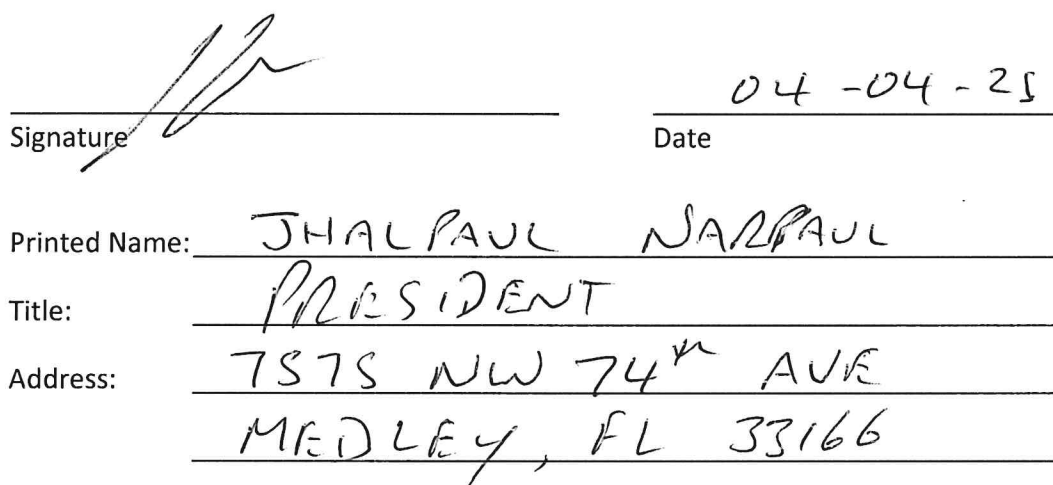 04-04-25
Signature Date
Printed Name: JHALPAUL NARPAUL
Title: PRESIDENT
Address: 7575 NW 74th AVE
MEDLEY, FL 33166